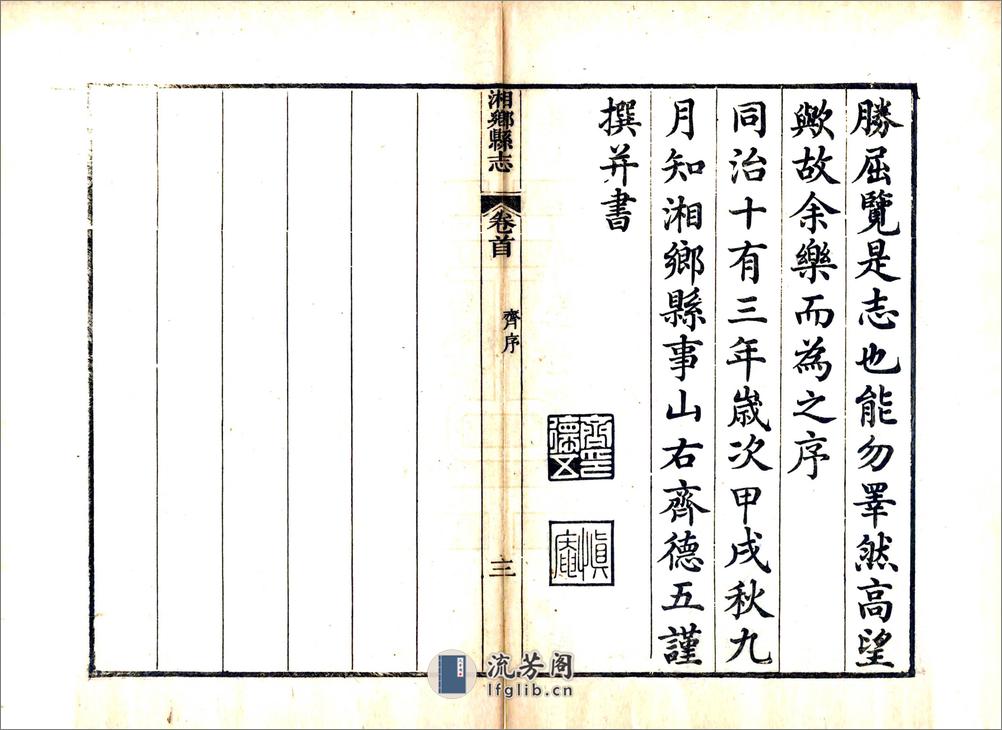 勝屈覽是志也能勿睪然高望
歟故余樂而為之序
同治十有三年歲次甲戌秋九
月知湘鄉縣事山右齊德五謹
撰并書
湘鄉縣志
卷首
齊序
三
流芳阁
lfglib.cn